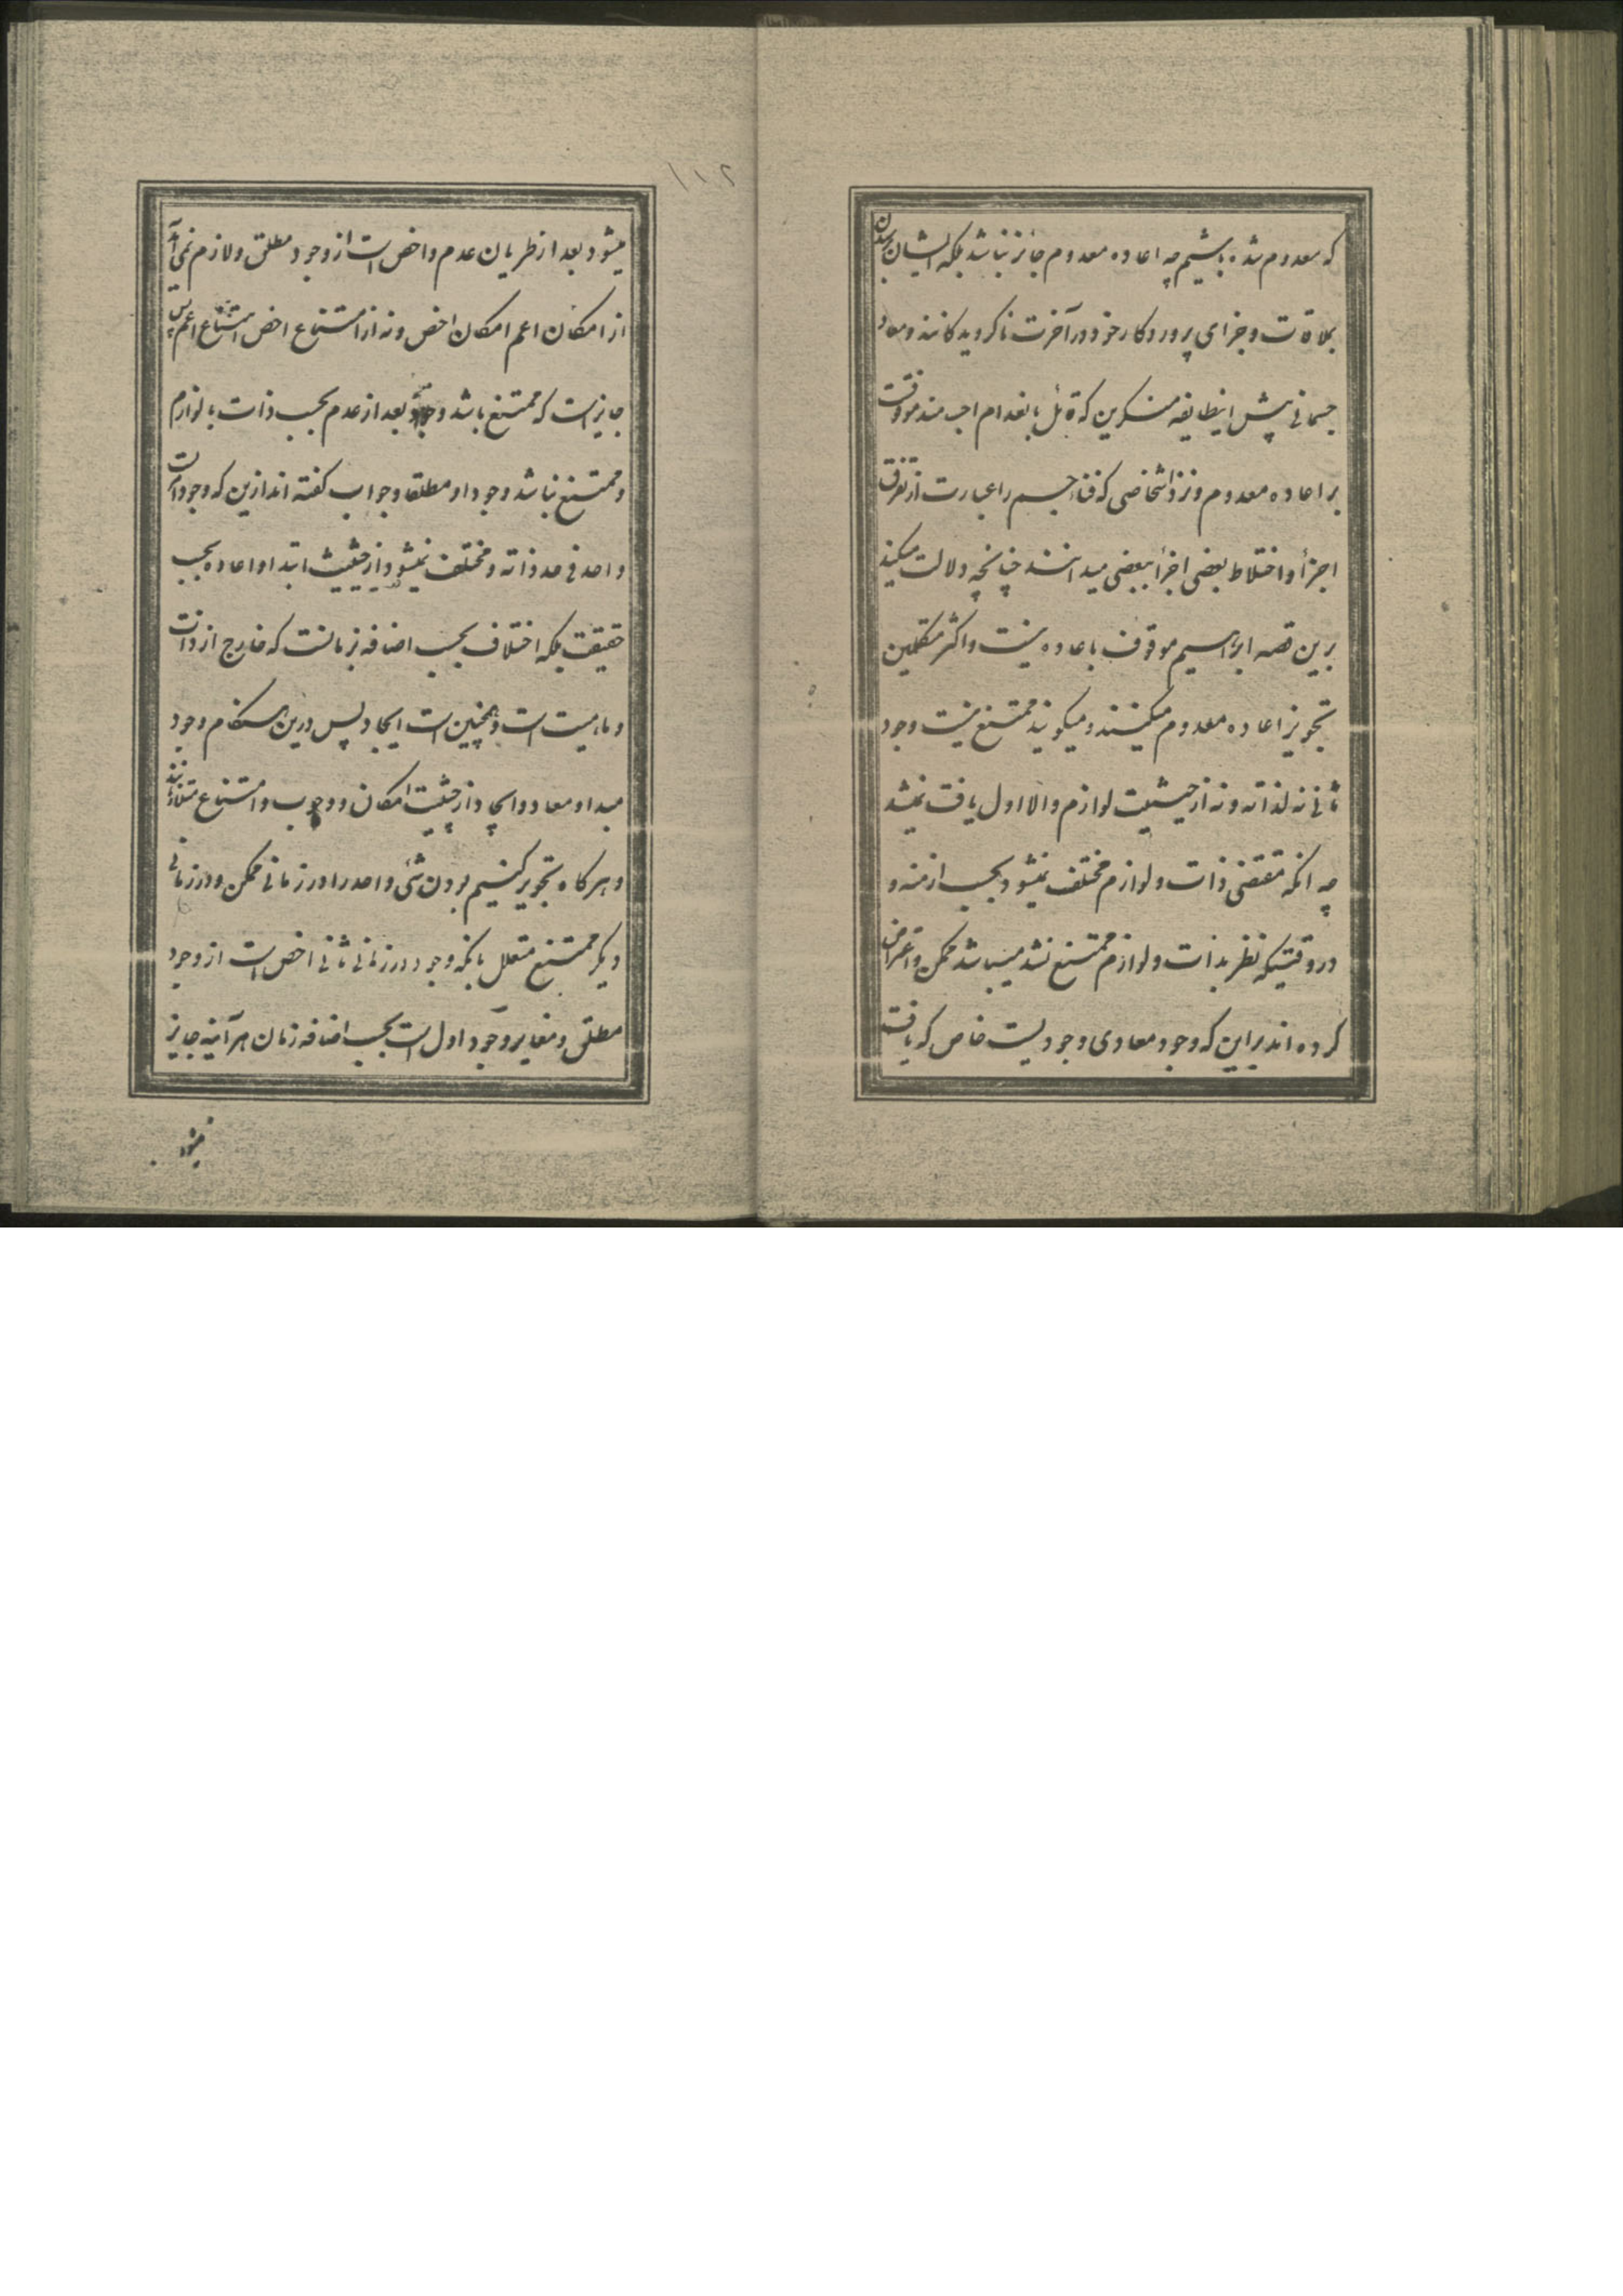 که معدوم شده باشیم چه اعاده معدوم جائز نباشد بلکه ایشان برسیدن
بملاقات و جزای پروردکار خود در آخرت ناکرویدکانند و معاد
جسمانی پیش اینطایفه منکرین که قائل بانعدام اجسامند موقوفست
بر اعاده معدوم و نزد اشخاصی که فناء جسم را عبارت از تفرق
اجزأ و اختلاط بعضی اجزأ ببعضی میدانند چنانچه دلالت میکند
برین قصه ابراهیم موقوف باعاده نیست و اکثر متکلمین
تجویز اعاده معدوم میکنند و میکویند ممتنع نیست وجود
ثانی نه لذاته و نه از حیثیت لوازم و الا اول یافت نمیشد
چه انکه مقتضی ذات و لوازم مختلف نمیشود بحسب ازمنه و
در وقتیکه نظر بذات و لوازم ممتنع نشد میباشد ممکن و اعتراض
کرده اند براین که وجود معادی وجودیست خاص که یافته
میشود بعد از طریان عدم و اخص است از وجود مطلق و لازم نمی آید
از امکان اعم امکان اخص و نه از امتناع اخص امتناع اعم پس
جایز است که ممتنع باشد وجود بعد از عدم بحسب ذات یا لوازم
و ممتنع نباشد وجود او مطلقا و جواب کفته اند ازین که وجود امریست
واحد فی حد ذاته و مختلف نمیشود از حیثیت ابتدا و اعاده بحسب
حقیقت بلکه اختلاف بحسب اضافه بزمانست که خارج از ذات
و ماهیت است و همچنین است ایجاد پس درین هنکام وجود
مبدا و معاد و ایجاد از حیثیت امکان و وجوب و امتناع متلازمانند
و هرکاه تجویز کنیم بودن شئی واحد را در زمانی ممکن و در زمانی
دیکر ممتنع متعلل بانکه وجود در زمانی ثانی اخص است از وجود
مطلق و مغایر وجود اول است بحسب اضافه زمان هر آینه جایز
میشود